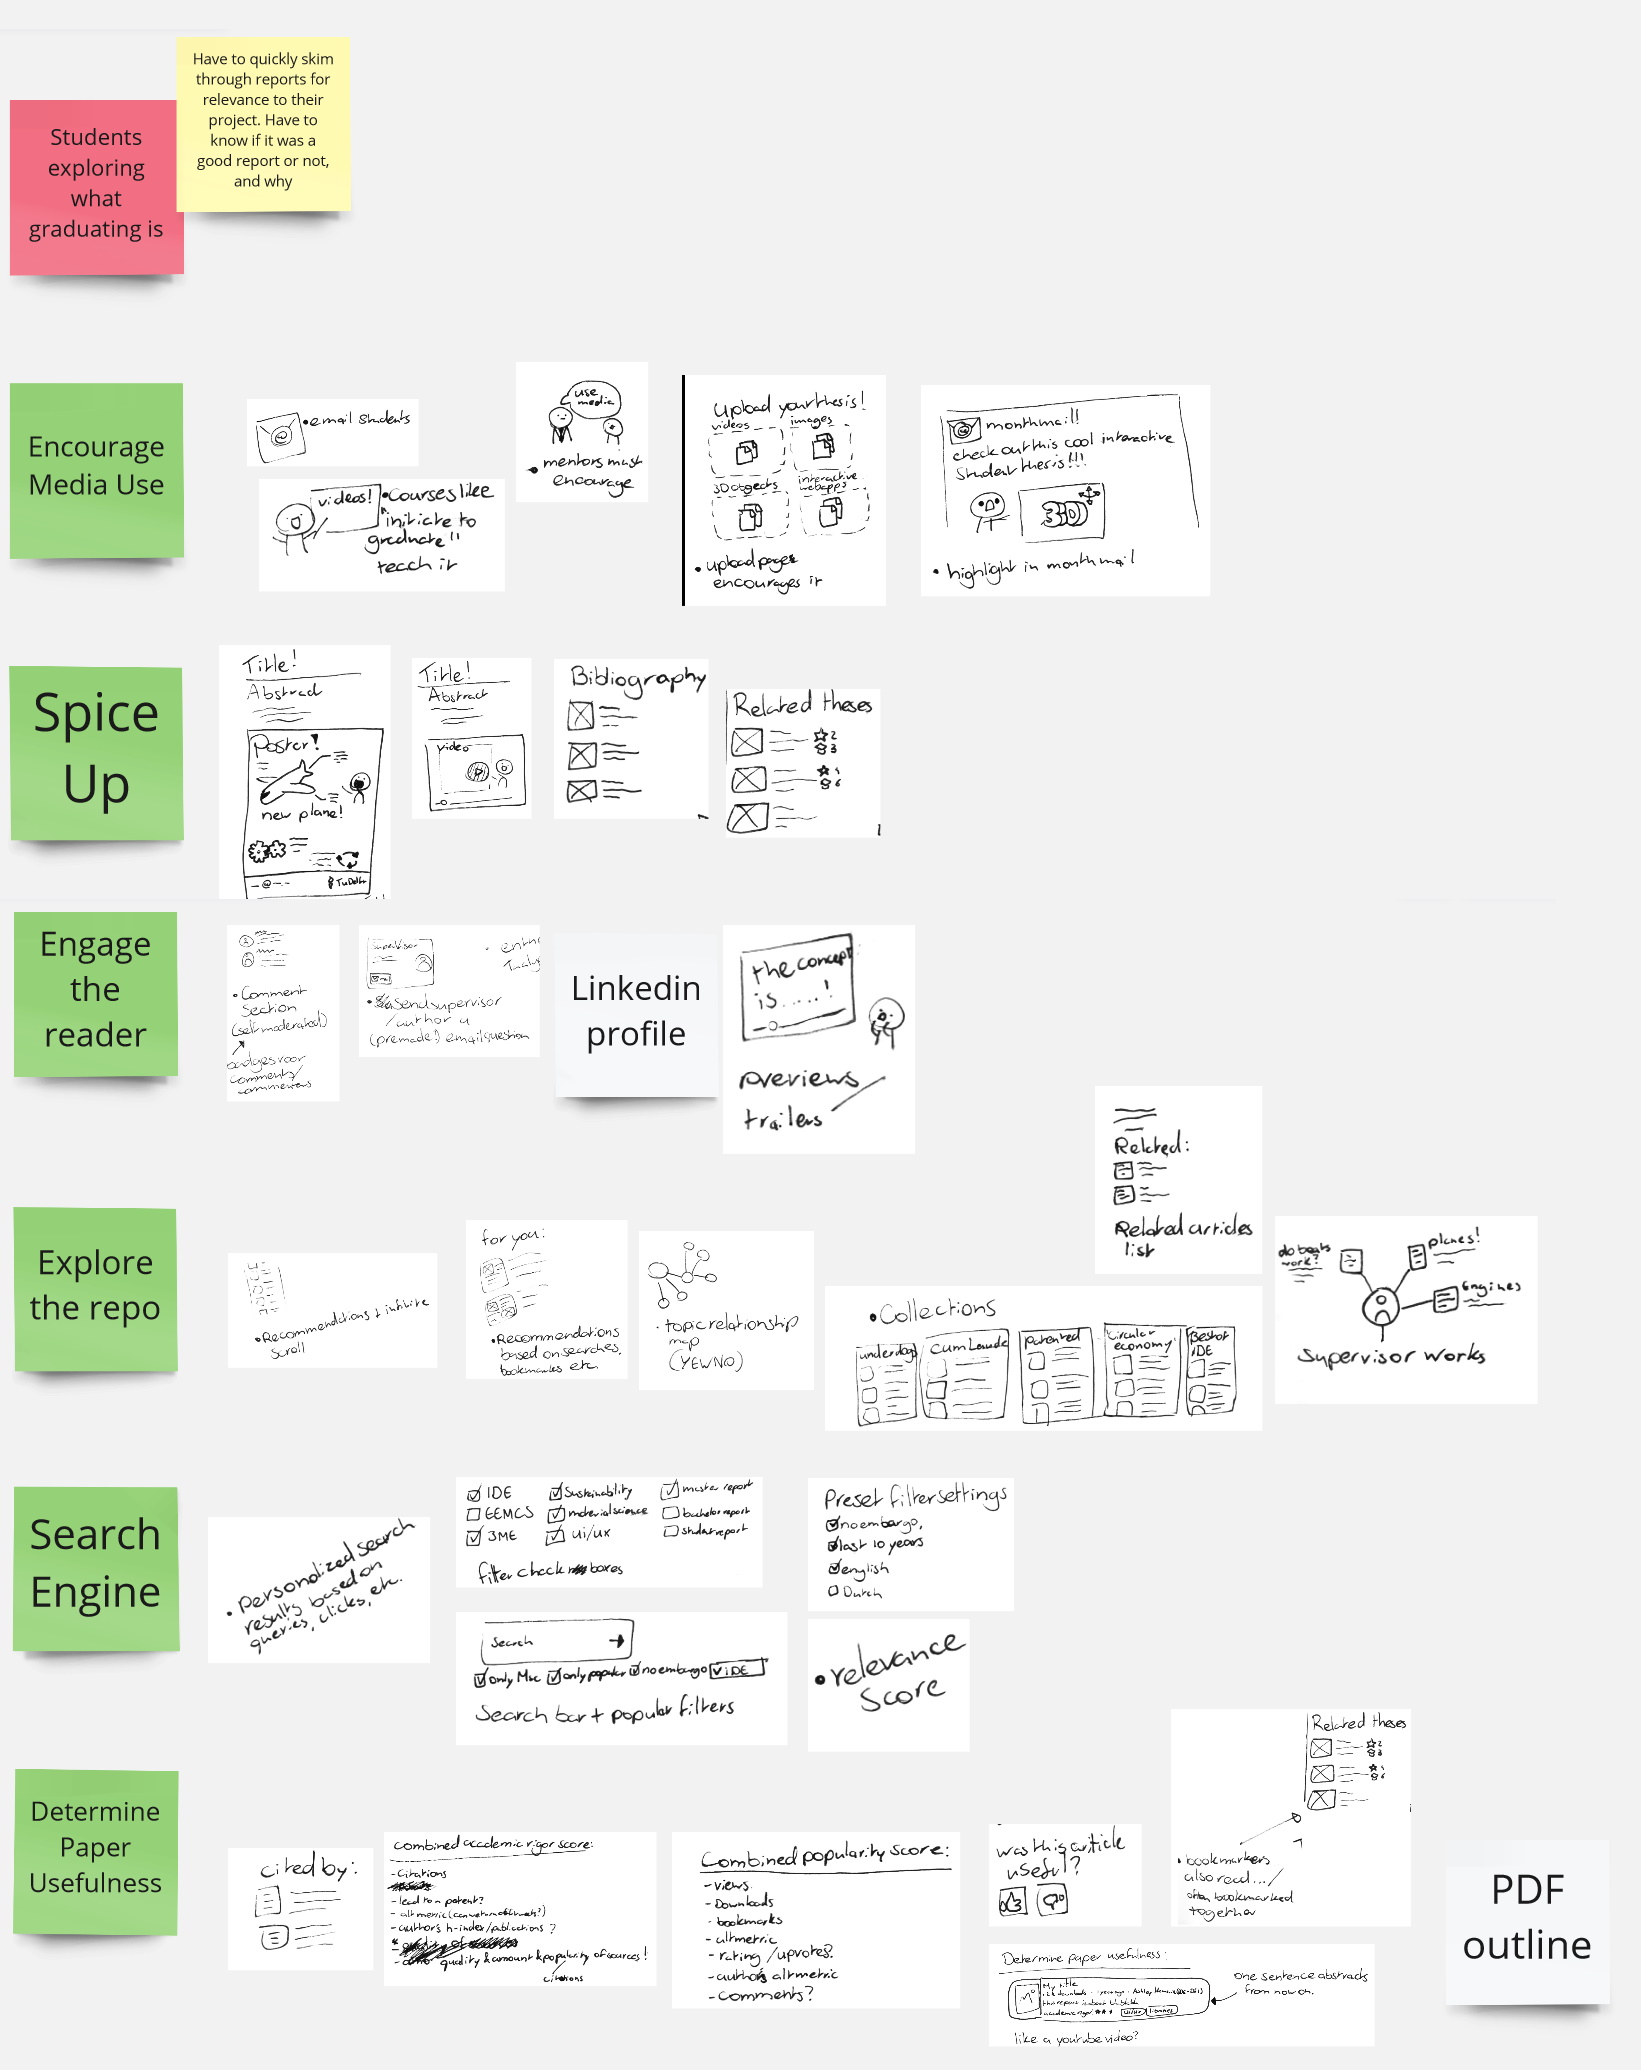 Students
exploring
what
graduating is
Have to quickly skim
through reports for
relevance to their
project. Have to
know if it was a
good report or not,
and why
Encourage
Media Use
•email students
videos!
•Courses like
initiate to
graduate''
teach it
use
media
• mentors must
encourage
Upload your thesis!
videos
images
3D objects
interactive
webapps
• upload page
encourages it
monthmail!
check out this cool interactive
Student thesis!!!
3D
• highlight in monthmail
Spice
Up
Title!
Abstract
Poster!
new plane!
TU Delft
Title!
Abstract
video
Bibliography
Related theses
2
3
1
6
Engage
the
reader
•Comment
Section
(self moderated)
badges voor
comments/
commenters
Supervisor
mail
• Send supervisor
/author a
(premade?) email question
Linkedin
profile
the concept
is.....!
previews
trailers
Explore
the repo
•Recommendations + infinite
Scroll
for you:
•Recommendations
based on searches,
bookmarks etc.
• topic relationship
map
(YEWNO)
Related:
Related articles
list
•Collections
underdogs
Cum Laude
patented
Circular
economy
Best of
IDE
do boats
work?
planes!
Engines
Supervisor works
Search
Engine
• Personalized search
results based on
queries, clicks, etc.
IDE
EEMCS
3ME
Sustainability
material science
ui/ux
master report
bachelor report
student report
filter check boxes
Preset filter settings
no embargo,
last 10 years
english
Dutch
Search
only Msc
only popular
no embargo
IDE
Search bar + popular filters
•relevance
Score
Determine
Paper
Usefulness
cited by:
Combined academic rigor score:
-Citations
-lead to a patent?
-author's h-index/publications ?
quality & amount & popularity of sources!
citations
Combined popularity score:
-views
-Downloads
-bookmarks
-altmetric
-rating /upvotes?
-author's altmetric
-comments?
was this article
useful?
Related theses
2
3
1
6
•bookmarkers
also read.../
often bookmarked
together
Determine paper usefulness:
My title
one sentence abstracts
from now on.
like a youtube video?
PDF
outline